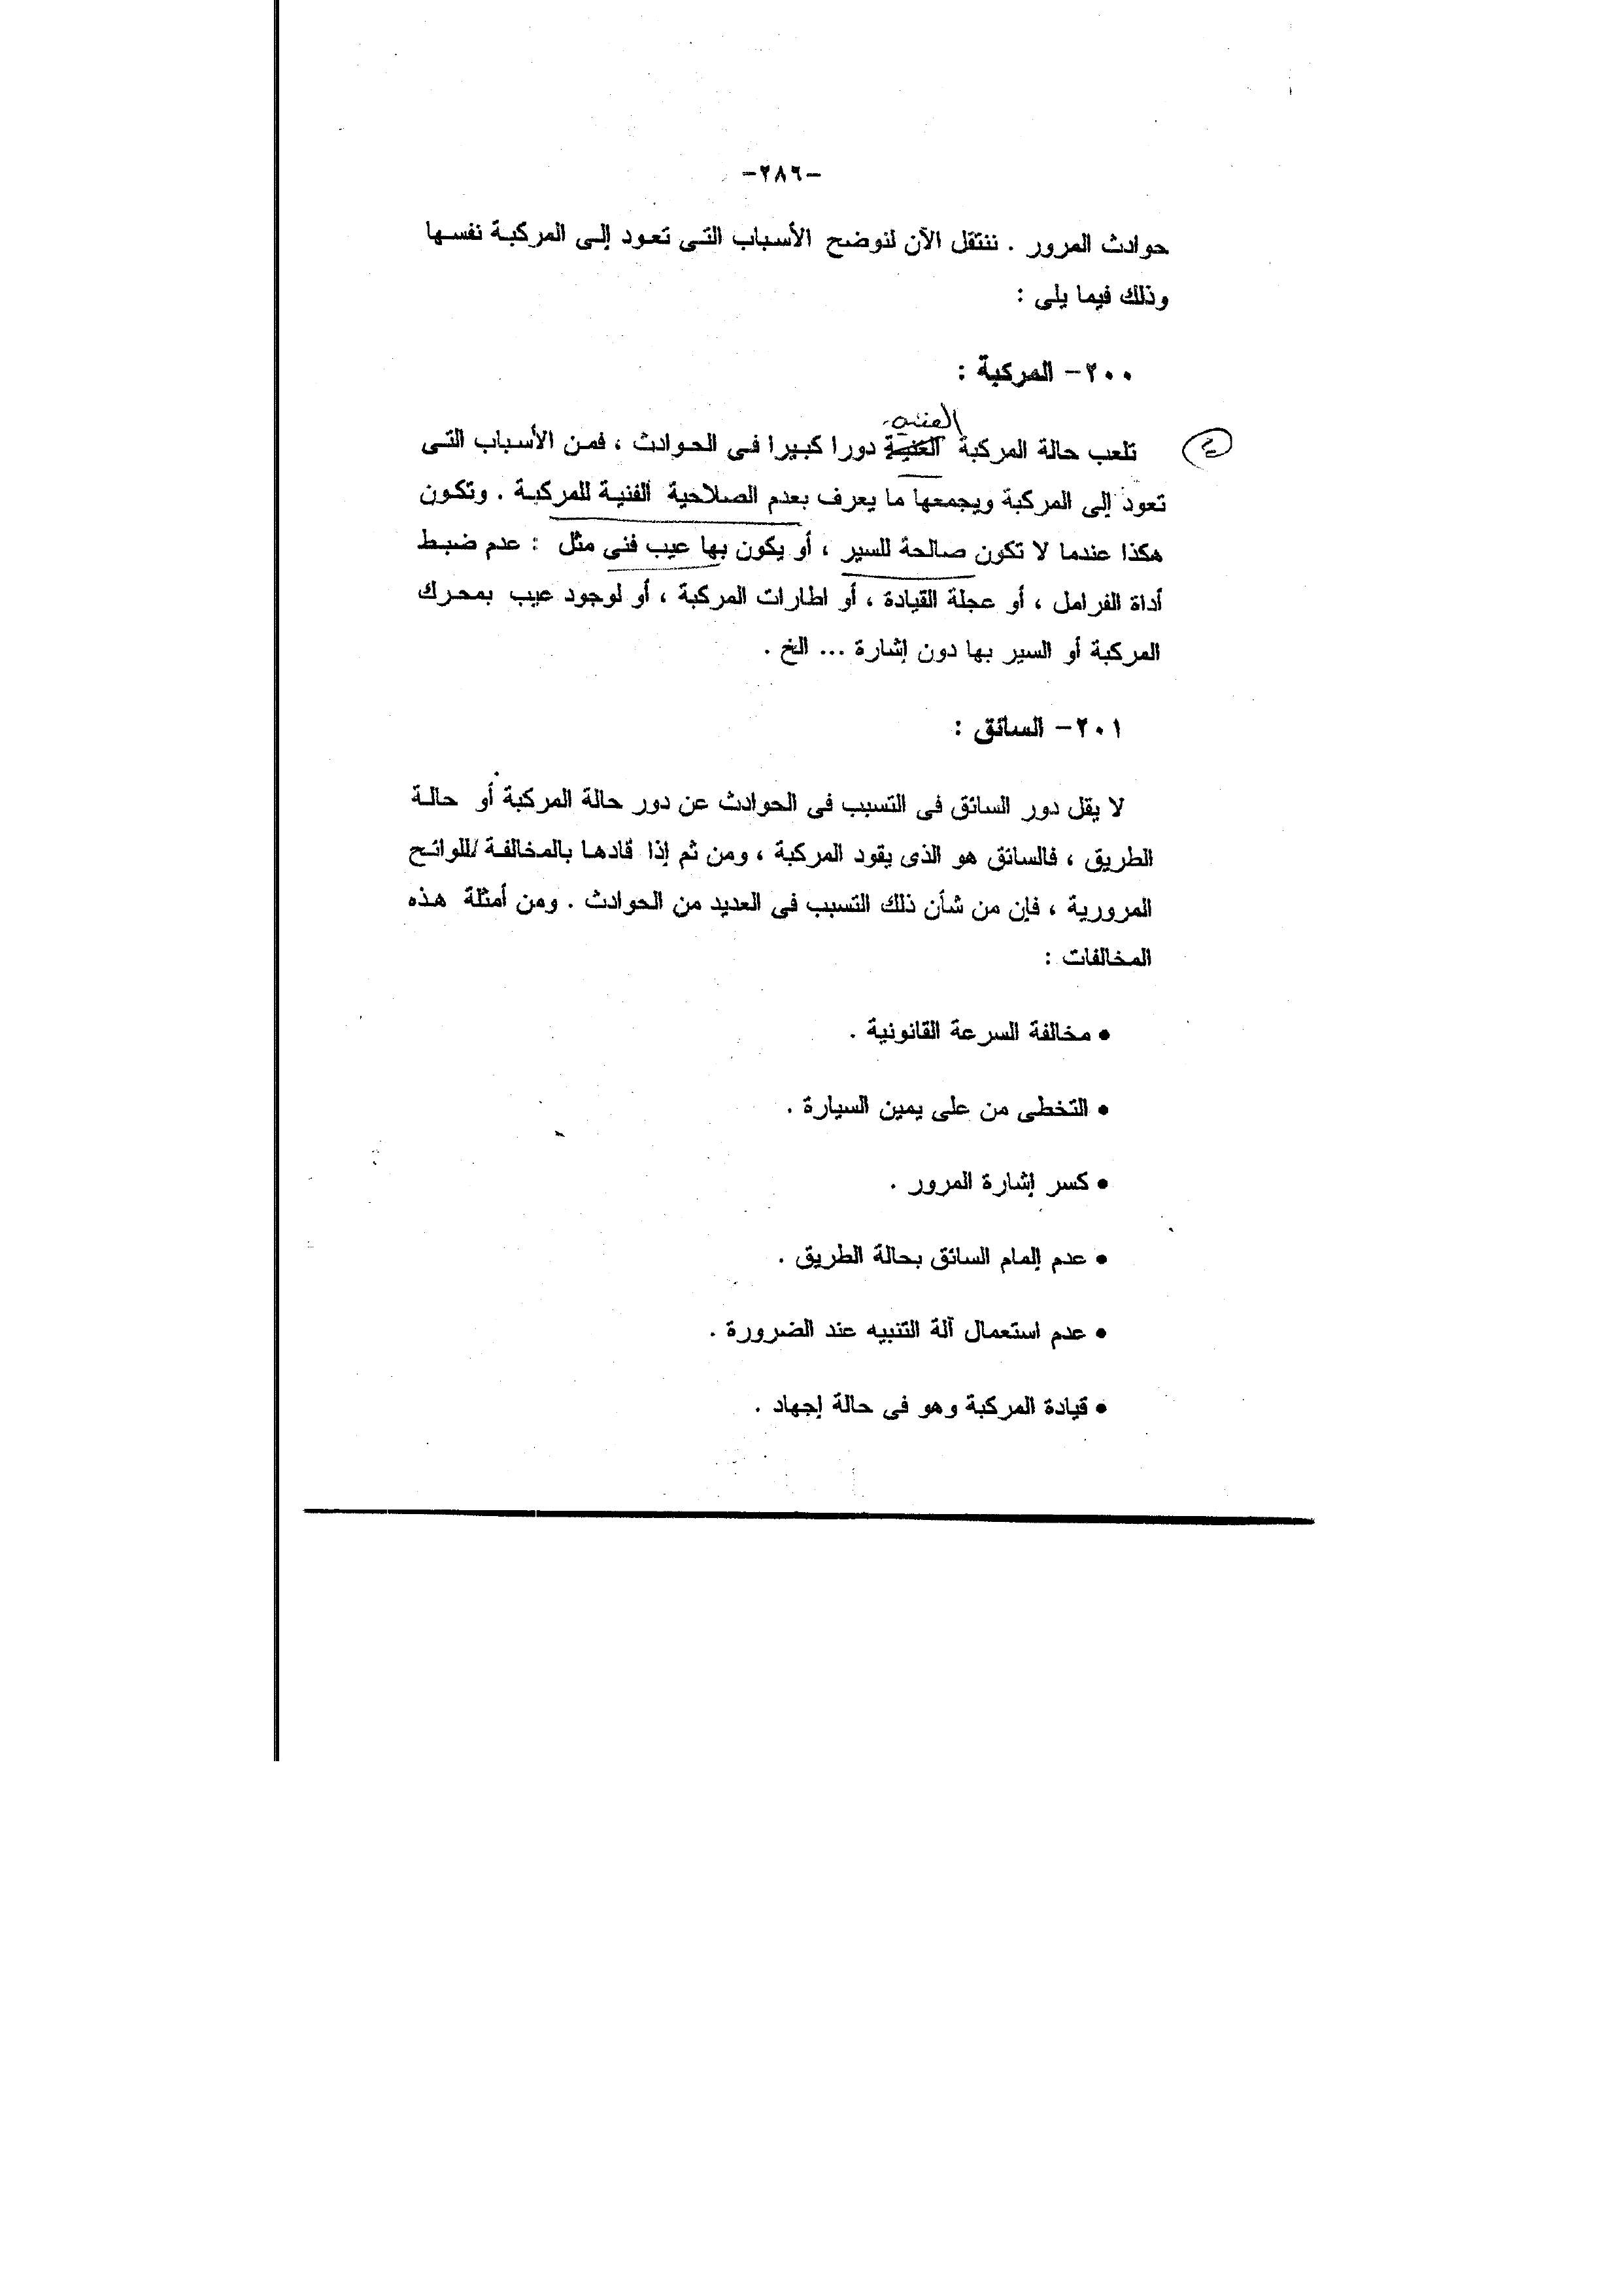 -٢٨٦-
حوادث المرور . ننتقل الآن لنوضح الأسباب التى تعود إلى المركبة نفسها
وذلك فيما يلى :
٢٠٠- المركبة :
الفنية
تلعب حالة المركبة دورا كبيرا فى الحوادث ، فمن الأسباب التى
تعود إلى المركبة ويجمعها ما يعرف بعدم الصلاحية الفنية للمركبة . وتكون
هكذا عندما لا تكون صالحة للسير ، أو يكون بها عيب فنى مثل : عدم ضبط
أداة الفرامل ، أو عجلة القيادة ، أو اطارات المركبة ، أو لوجود عيب بمحرك
المركبة أو السير بها دون إشارة ... الخ .
٢٠١- السائق :
لا يقل دور السائق فى التسبب فى الحوادث عن دور حالة المركبة أو حالة
الطريق ، فالسائق هو الذى يقود المركبة ، ومن ثم إذا قادها بالمخالفة للوائح
المرورية ، فإن من شأن ذلك التسبب فى العديد من الحوادث . ومن أمثلة هذه
المخالفات :
• مخالفة السرعة القانونية .
• التخطى من على يمين السيارة .
• كسر إشارة المرور .
• عدم إلمام السائق بحالة الطريق .
• عدم استعمال آلة التنبيه عند الضرورة .
• قيادة المركبة وهو فى حالة إجهاد .